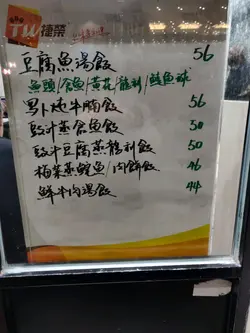 TW 捷榮
豆腐魚湯飯 56
魚頭/倉魚/黃花/龍利/鯪魚球
羅卜炆牛腩飯 56
豉汁蒸倉魚飯 50
豉汁豆腐蒸龍利飯 50
梅菜蒸鯇魚/肉餅飯 46
鮮牛肉湯飯 44